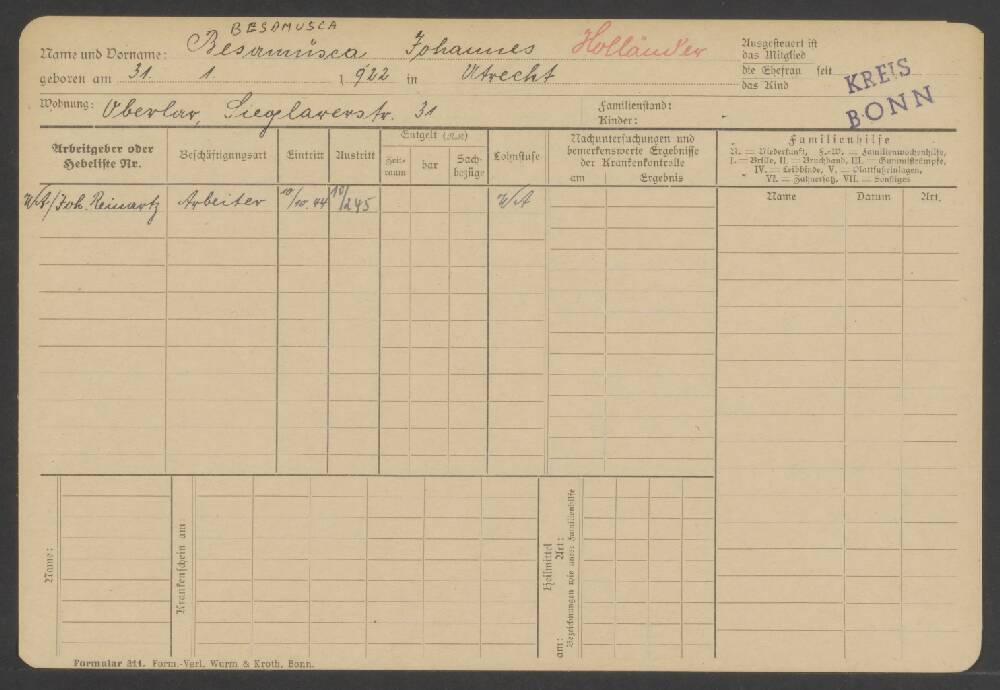 BESAMUSCA
Name und Vorname: Besamusca Johannes Holländer
geboren am 31. 1. 1922 in Utrecht
Wohnung: Oberlar, Sieglarerstr. 31
Familienstand:
Kinder:
Ausgesteuert ist
das Mitglied
die Ehefrau seit
das Kind
KREIS
BONN
Arbeitgeber oder
Hebeliste Nr.
Beschäftigungsart
Eintritt
Austritt
Entgelt (RM)
Zeitraum
bar
Sachbezüge
Lohnstufe
Nachuntersuchungen und
bemerkenswerte Ergebnisse
der Krankenkontrolle
am Ergebnis
Familienhilfe
N. = Niederkunft, F.-W. = Familienwochenhilfe,
I. = Brille, II. = Bruchband, III. = Gummistrümpfe,
IV. = Leibbinde, V. = Plattfußeinlagen,
VI. = Zahnersatz, VII. = Sonstiges
Name Datum Art.
Joh. Reinartz Arbeiter 10/10.44
Name:
Krankenschein am
Heilmittel
Art:
am: Bezeichnungen wie unter Familienhilfe
Formular 311. Form.-Verl. Wurm & Kroth, Bonn.